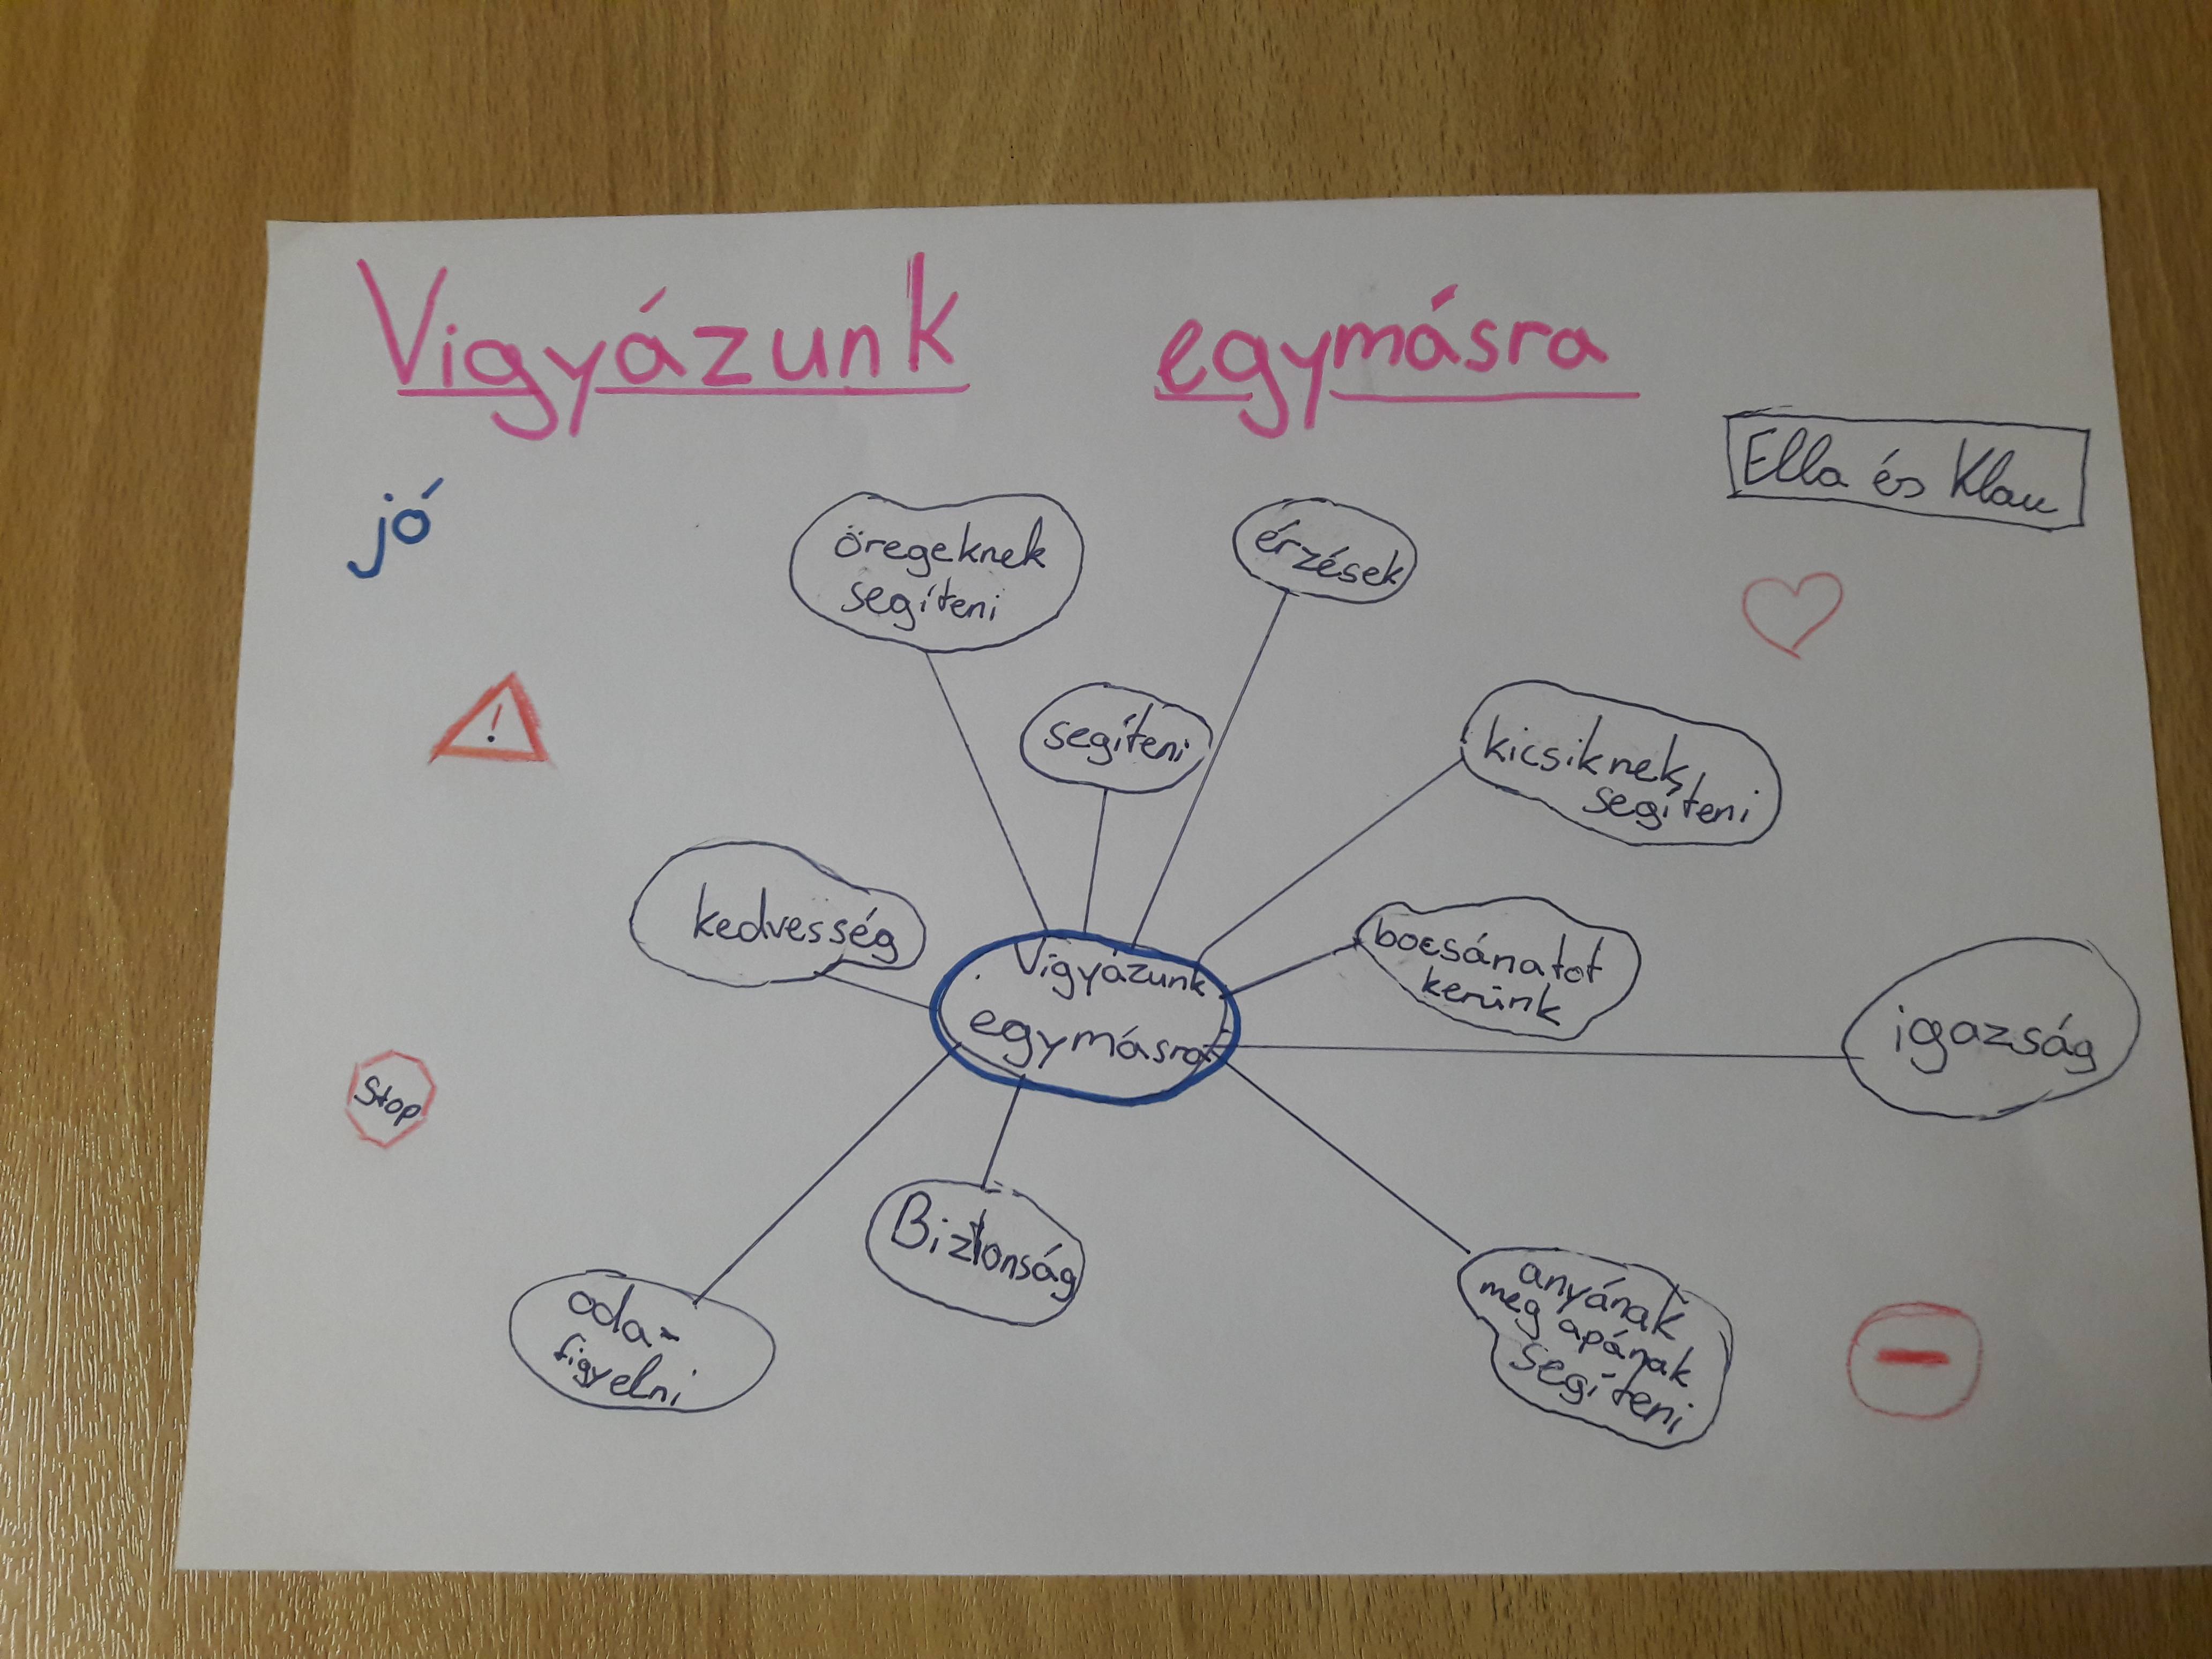 Vigyázunk egymásra
Ella és Klau
jó
öregeknek
segíteni
érzések
segíteni
!
kicsiknek
segíteni
kedvesség
bocsánatot
kerünk
Vigyázunk
egymásra
igazság
Stop
Biztonság
oda-
figyelni
anyának
meg apának
segíteni